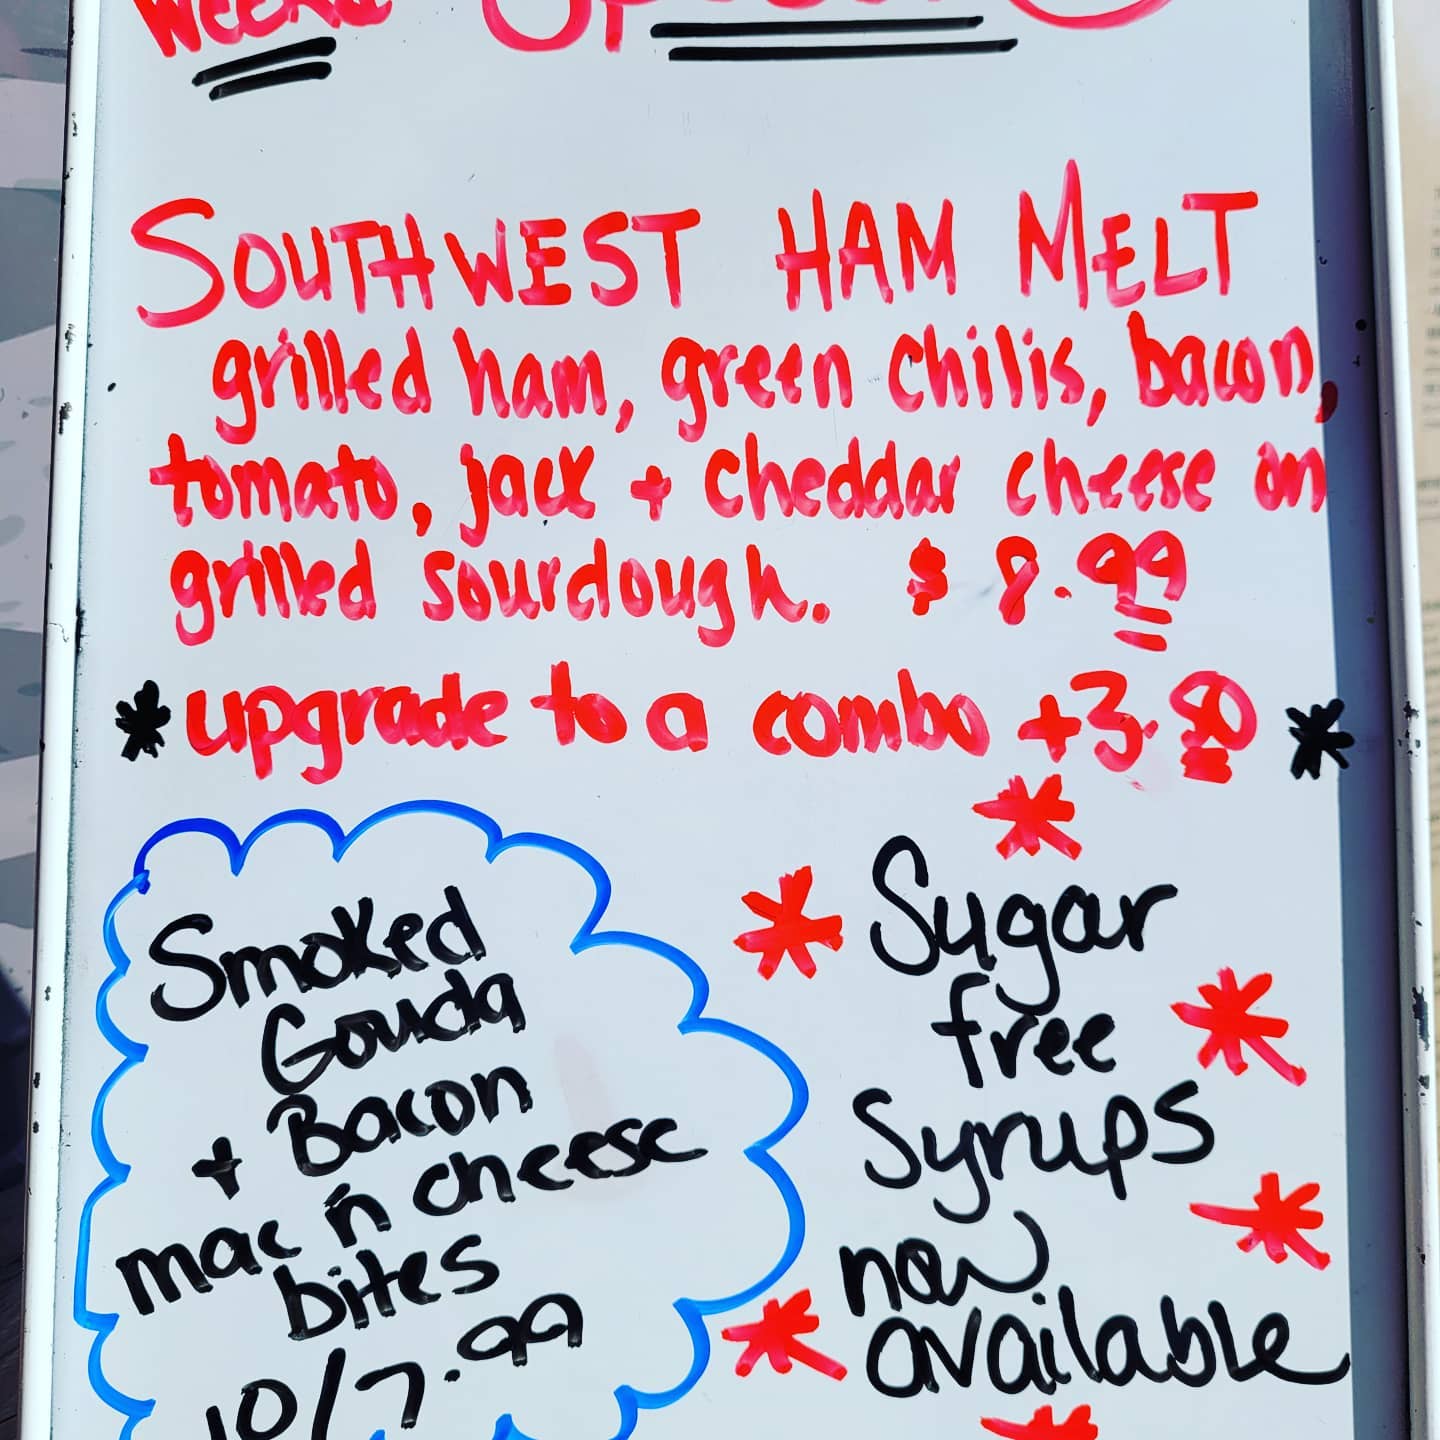 SOUTHWEST HAM MELT
grilled ham, green chilis, bacon,
tomato, jack + cheddar cheese on
grilled sourdough. $ 8.99
*upgrade to a combo +3.80*
Smoked
Gouda
+ Bacon
mac n cheese
bites
10/7.99
Sugar
free
Syrups
now
available